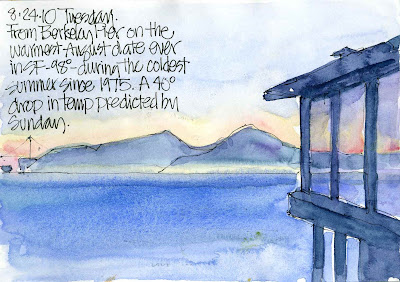 8.24.10 Tuesday.
From Berkeley Pier on the
warmest August date ever
in SF-98°-during the coldest
summer since 1975. A 40°
drop in temp predicted by
Sunday.